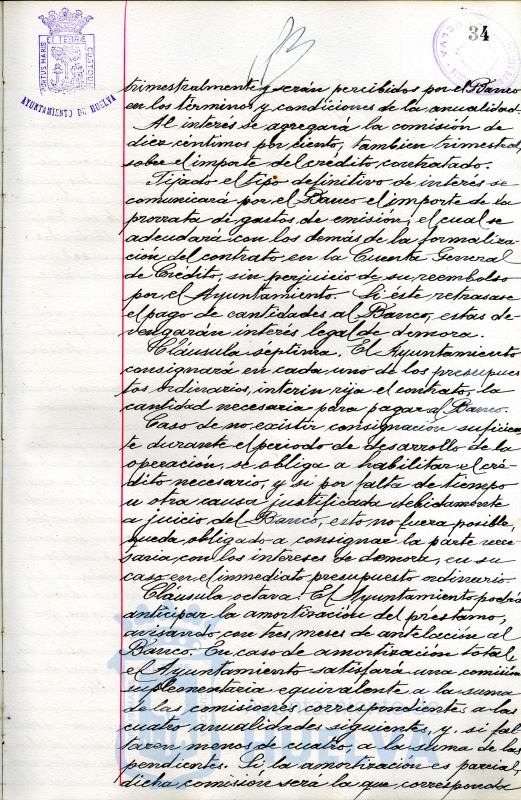 34
PORTUS MARIS ET TERRÆ CUSTODIA
AYUNTAMIENTO DE HUELVA
trimestralmente y serán percibidos por el Banco
en los términos y condiciones de la anualidad.
Al interés se agregará la comisión de
diez céntimos por ciento, tambien trimestral,
sobre el importe del crédito contratado.
Fijado el tipo definitivo de interés se
comunicará por el Banco el importe de la
prorrata de gastos de emisión, el cual se
adeudará con los demás de la formaliza-
ción del contrato en la Cuenta General
de Crédito, sin perjuicio de su reembolso
por el Ayuntamiento. Si éste retrasase
el pago de cantidades al Banco, estas de-
vengarán interés legal de demora.
Cláusula séptima. El Ayuntamiento
consignará en cada uno de los presupues
tos ordinarios, interin rija el contrato, la
cantidad necesaria para pagar al Banco.
Caso de no existir consignación suficien
te durante el periodo de desarrollo de la
operación, se obliga a habilitar el cré-
dito necesario, y si por falta de tiempo
u otra causa justificada debidamente
a juicio del Banco, esto no fuera posible,
queda obligado a consignar la parte nece-
saria, con los intereses de demora, en su
caso en el inmediato presupuesto ordinario.
Cláusula octava. El Ayuntamiento podrá
anticipar la amortización del préstamo,
avisando con tres meses de antelación al
Banco. En caso de amortización total,
el Ayuntamiento satisfará una comisión
suplementaria equivalente a la suma
de las comisiones correspondientes a las
cuatro anualidades siguientes, y, si fal
taren menos de cuatro, a la suma de las
pendientes. Si la amortización es parcial,
dicha comisión será la que corresponda